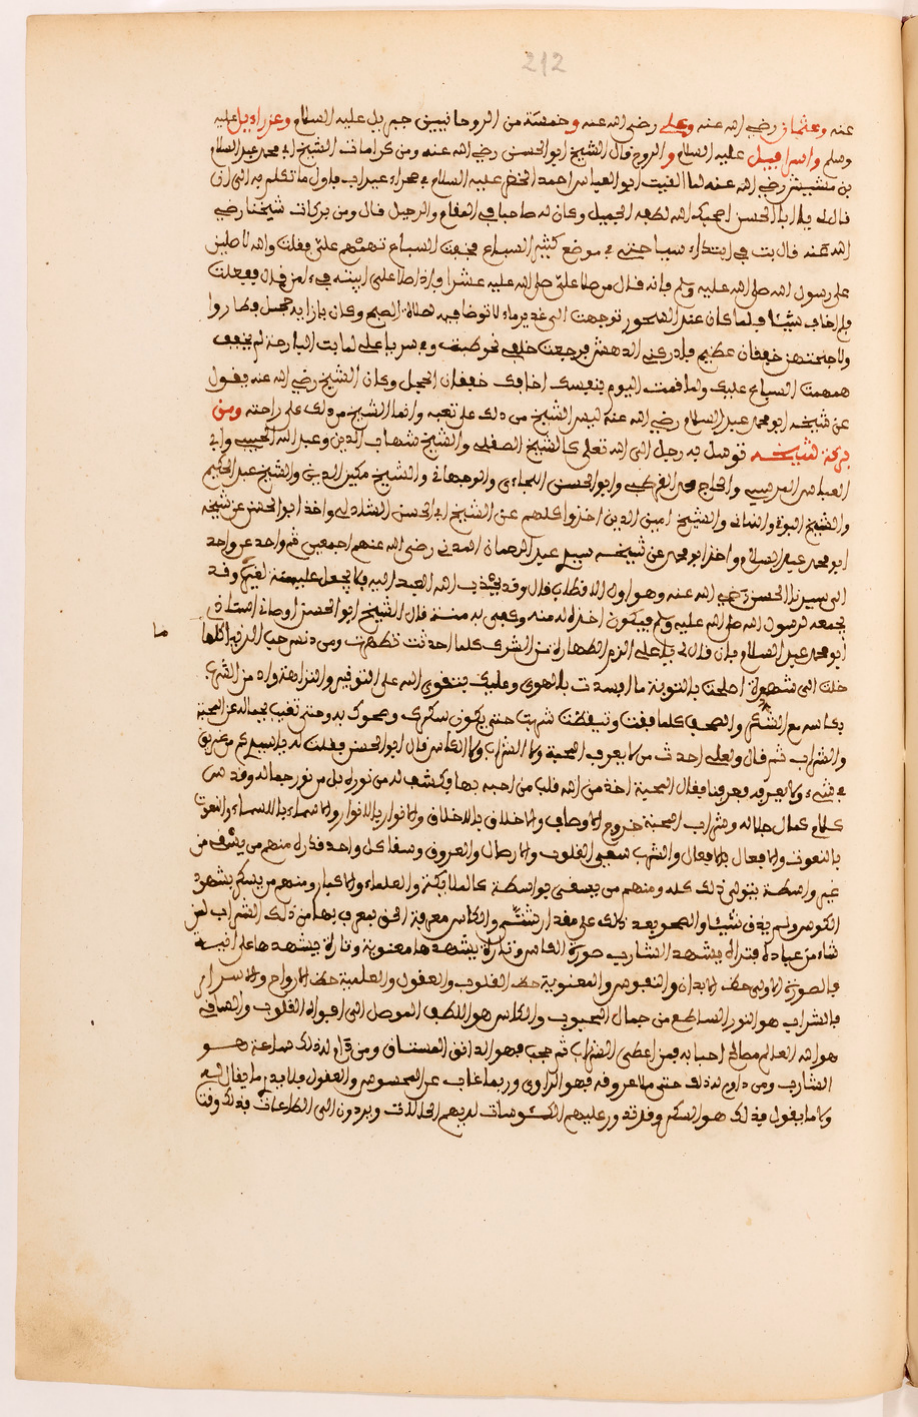 212
عنه وعثمان رضي الله عنه وعلي رضي الله عنه وخمسة من الروحانيين جبريل عليه السلام وعزراءيل عليه
وسلم واسرافيل عليه السلام والروح قال الشيخ ابو الحسن رضي الله عنه ومن كرامات الشيخ ابي محمد عبد السلام
بن مشيش رضي الله عنه لما القيت ابو العباس احمد الخضر عليه السلام في صحراء عيذاب فاول ما تكلم به الي ان
قال لي يا ابا الحسن اصحبك الله لطفه الجميل وكان لك صاحبا في المقام والرحيل قال ومن بركات شيخنا رضي
الله عنه قال بت في ابتداء سياحتي في موضع كثير السباع فجعلت السباع تهمهم علي فقلت والله لاصلين
على رسول الله صلى الله عليه وسلم فانه قال من صلا علي صلى الله عليه عشرا فاذا صلا علي ابيته في امن قال ففعلت
فلم اخاف شيئا فلما كان عند السحور توجهت الى غدير ماء لاتوضا فيه لصلاة الصبح وكان بازايه حجل فطاروا
ولاجنحتهن خفقان عظيم فادركني الدهش فرجعت خلفي فنوديت في سري يا علي لما بت البارحة لم تخف
همهمة السباع عليك ولما قمت اليوم بنفسك اخافك خفقان الحجل وكان الشيخ رضي الله عنه يقول
عن شيخه ابو محمد عبد السلام رضي الله عنه ليس الشيخ من دلك على تعبه وانما الشيخ من دلك على راحته ومن
بركة شيخه توسل به رجل الى الله تعلى كالشيخ الصقلي والشيخ شهاب الدين وعبد الله الحبيب وابي
العباس المرسي والحاج محمد القرطبي وابو الحسن البجاءي والوجهاني والشيخ مكين الدين والشيخ عبد الحكيم
والشيخ البوني والشيخ امين الدين اخذوا كلهم عن الشيخ ابي الحسن الشاذلي واخذ ابو الحسن عن شيخه
ابو محمد عبد السلام واخذ ابو محمد عن شيخه سيد عبد الرحمان المدني رضي الله عنهم اجمعين ثم واحد عن واحد
الى سيدنا الحسن رضي الله عنه وهو اول الاقطاب قال وقد يجذب الله العبد اليه فلا يجعل عليه منة لغيره وقد
يجمعه لرسول الله صلى الله عليه وسلم فيكون اخذا له منه وكفى به منة قال الشيخ ابو الحسن اوصاني استاذي
ابو محمد عبد السلام بان قال لي يا علي الزم الطهارة من الشرك كلما احدثت تطهرت ومن دنس حب الدنيا كلما
ما
ملت الى شهوة اصلحت بالتوبة ما افسدت بالهوى وعليك بتقوى الله على التوفير والنزاهة واد من الشرب
بكاسه مع السكر والصحو كلما افقت وتيقظت شربت حتى يكون سكرك وصحوك به وحتى تغيب بجماله عن المحبة
والشراب ثم قال ولعلي احدث من لا يعرف المحبة ولا الشراب ولا الكاس قال ابو الحسن فقلت له يا سيدي كم من غريق
في شيء ولا يعرفه فعرفنا فقال المحبة اخذة من الله قلب من احبه بها وكشف له من نوره بل من نور جماله وقدس
كمال جلاله وشراب المحبة خروج الاوصاف والاخلاق بالاخلاق والانوار بالانوار والاسماء بالاسماء والنعوت
بالنعوت والافعال بالافعال والشرب سقي القلوب والاوصال والعروق وسقا كل واحد قدره منهم من يسقى من
غير واسطة يتولى ذلك كله ومنهم من يسقى بواسطة كالملايكة والعلماء والاكبار ومنهم من يسكر بشهود
الكوس ولم يذق شيئا والصحو بعد ذلك على مقدار شربهم والكاس معرفة الحق يغرف بها من ذلك الشراب لمن
شاء من عباده فتراه يشهد الشارب صورة الكاس وتارة يشهدها معنوية وتارة يشهدها علمية
فالصورة الاولى حظ الابدان والنفوس والمعنوية حظ القلوب والعقول والعلمية حظ الارواح والاسرار
فالشراب هو النور الساطع من جمال المحبوب والكاس هو اللطف الموصل الى افواه القلوب والساقي
هو الله العالم بمصالح احبابه فمن اعطى الشراب ثم حجب فهو الذائق المشتاق ومن دام له ذلك ساعة هو
الشارب ومن داوم له ذلك حتى ملا عروقه فهو الراوي وربما غاب عن المحسوس والعقول فلا يدري ما يقال له
ولا ما يقول فذلك هو السكر وقد تدور عليهم الكئوسات لديهم الحالات ويردون الى الطاعات فذلك وقت